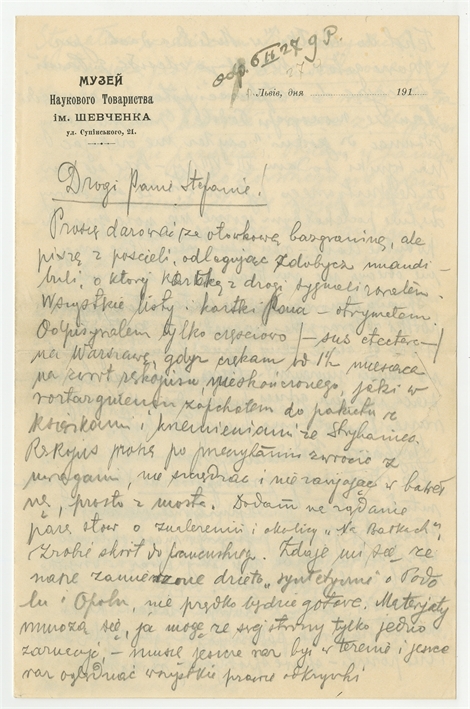 МУЗЕЙ
Наукового Товариства
ім. ШЕВЧЕНКА
ул. Супінського, 21.
Львів, дня 191
27
Drogi Panie Stefanie!
Proszę darować ze otowkową bazgraninę, ale
piszę z pościeli, odlegując zdobycz mandi-
buli, o ktorej kartkę z drogi sygnalizowałem.
Wszystkie listy i kartki Pana – otrzymałem.
Odpisywałem tylko częściowo
na Warszawę gdyż czekam od 1½ miesiąca
na zwrot rękopisu nieskończonego, jaki w
roztargnieniu zapchałem do pakietu z
książkami i krzemieniami ze
Rękopis proszę po przeczytaniu zwrócić z
uwagami, nie szczędząc i nie zawijając w baweł
nę, prosto z mostu. Dodam na żądanie
parę słow o znalezieniu i okolicy „Na
Zrobię skrot do francuskiego. Zdaje mi się, ze
nasze zamierzone dzieło „syntetyczne" o Podo
lu i Opolu, nie prędko będzie gotowe. Materjały
mnożą się, ja mogę ze swej strony tylko jedno
zarzucać, – muszę jeszcze raz być w terenie i jeszcze
raz oglądnąć wszystkie prawie odkrywki